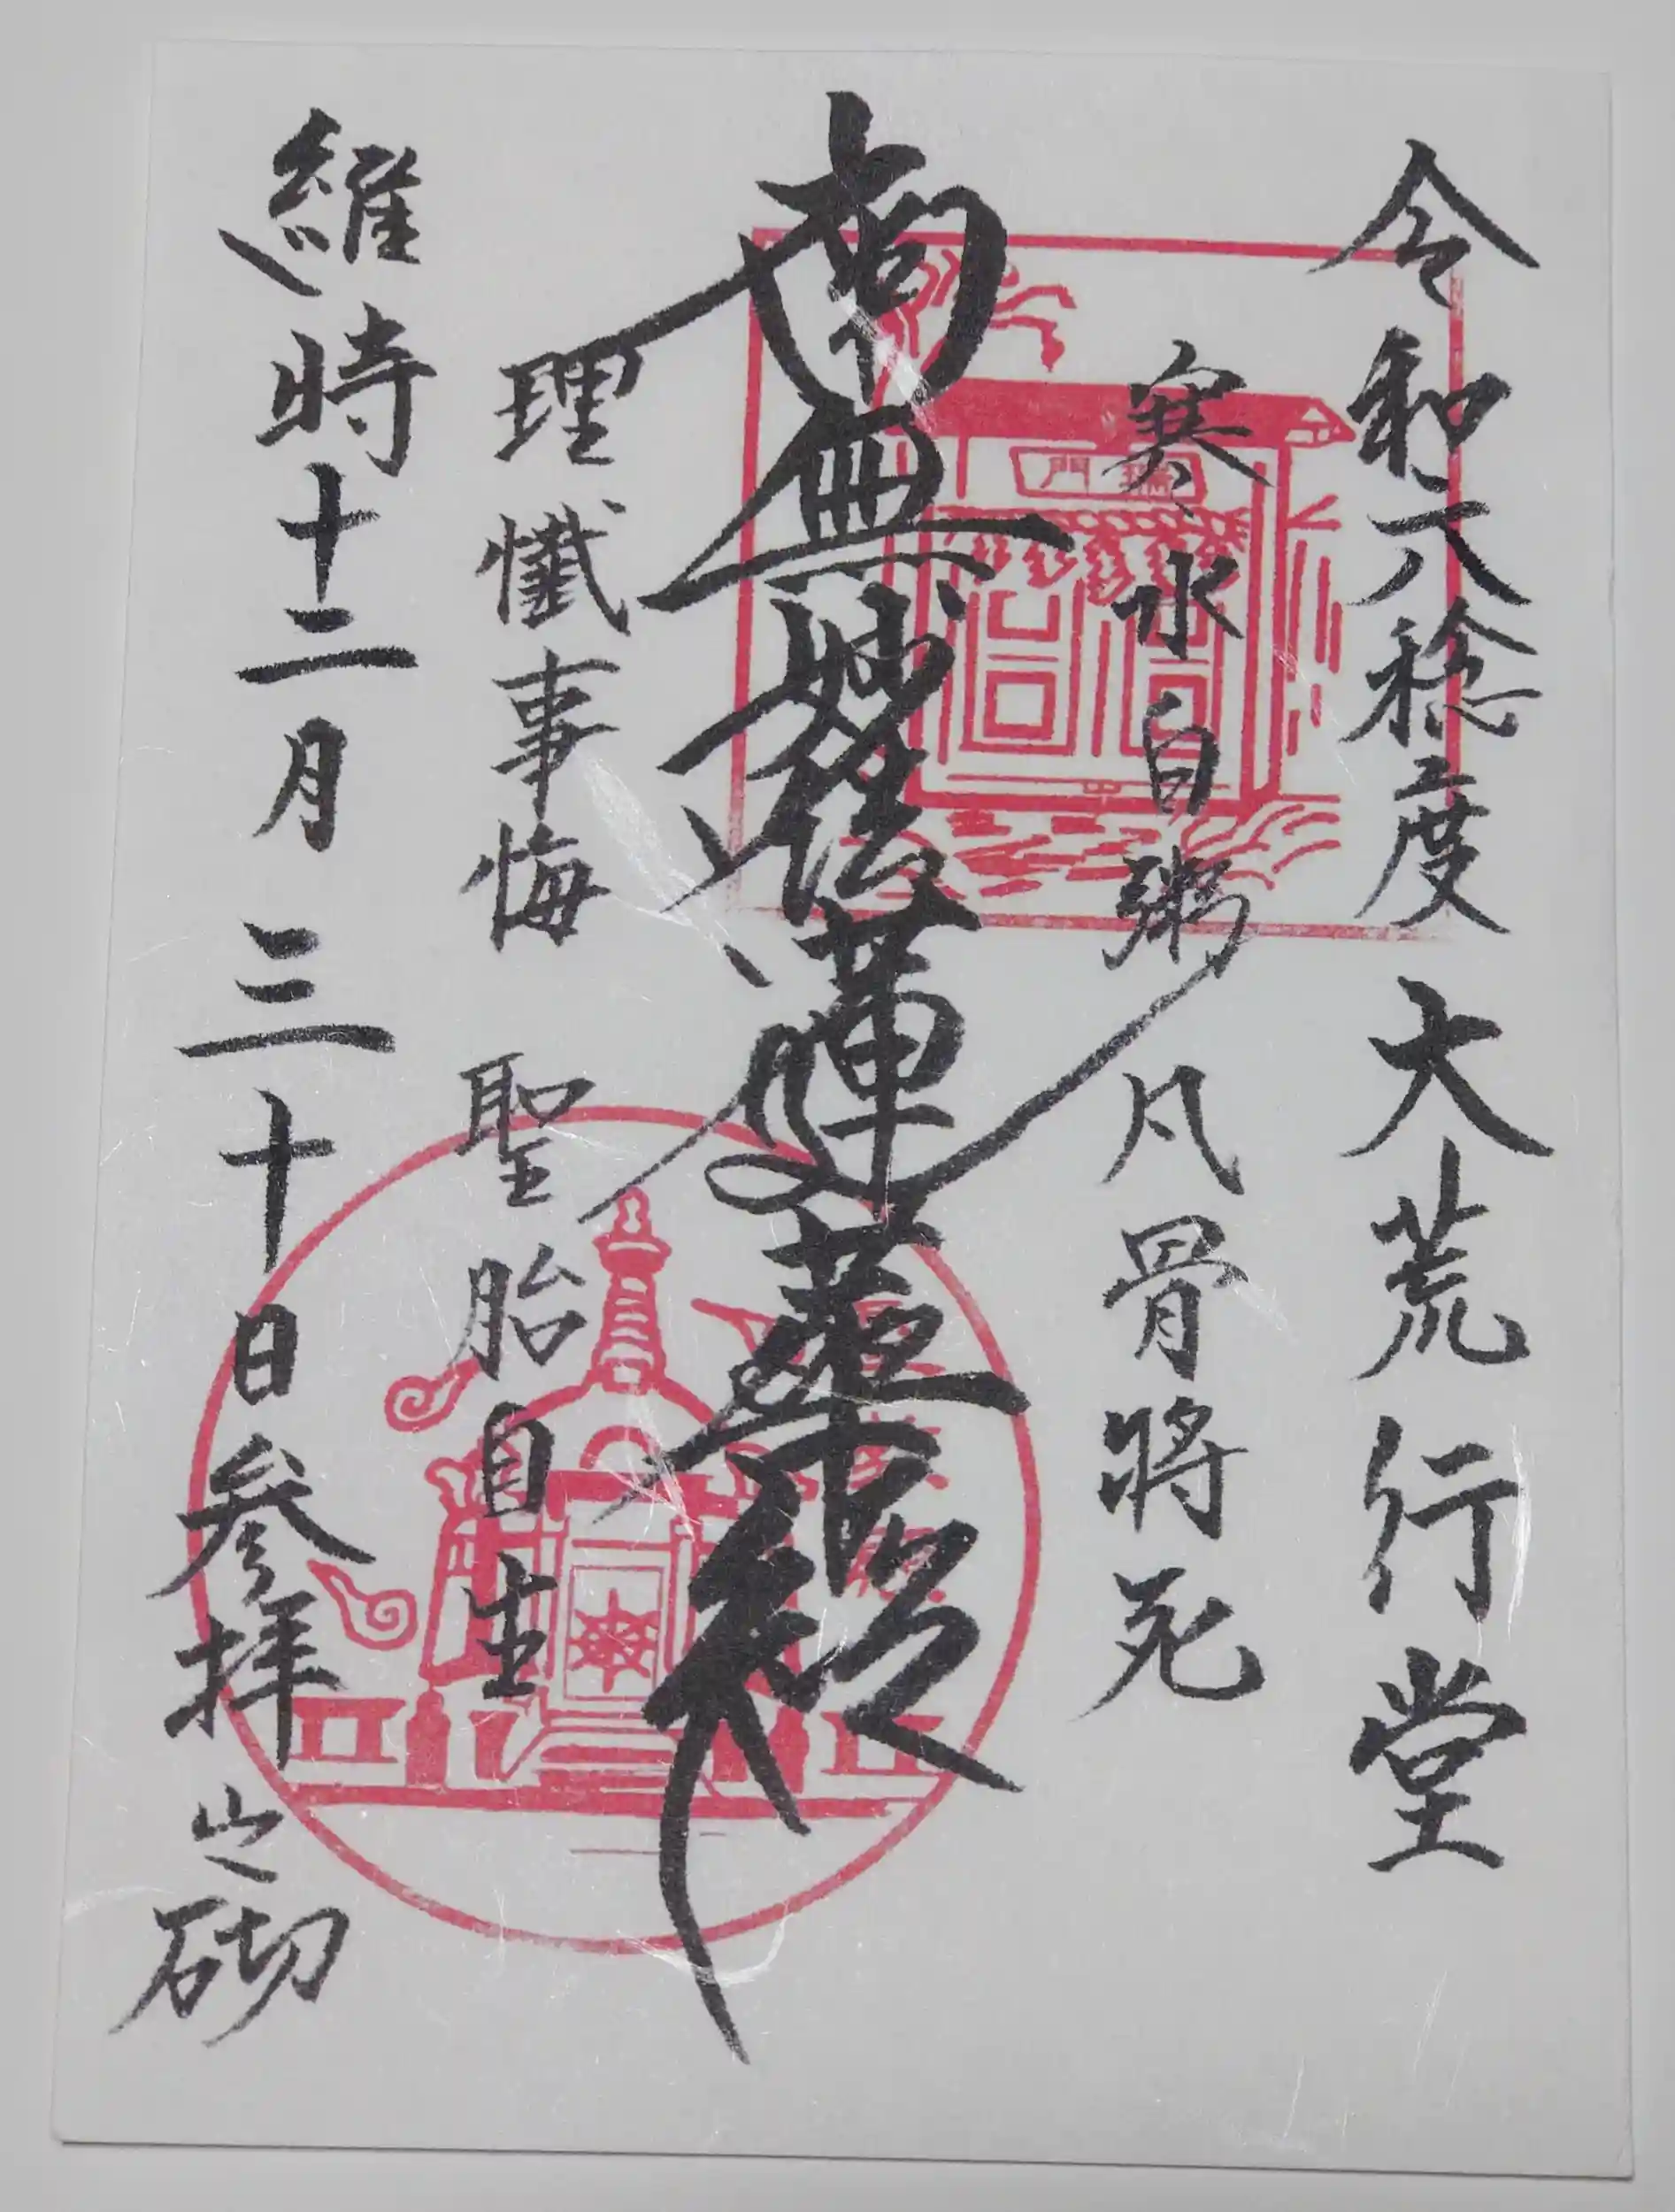 令和六稔度 大荒行堂
寒水白粥 凡骨將死
南無妙法蓮華経
理懺事悔 聖胎自生
維時十二月三十日参拝之砌
瑞門